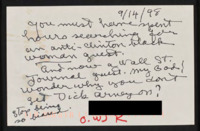 9/14/98
you must have spent
hours searching for
an anti-clinton black
woman guest.
And more a Wall St.
Journal guest. my God!
wonder why you don't
get Dick Armey on?
stop being
so bias
O.W.R